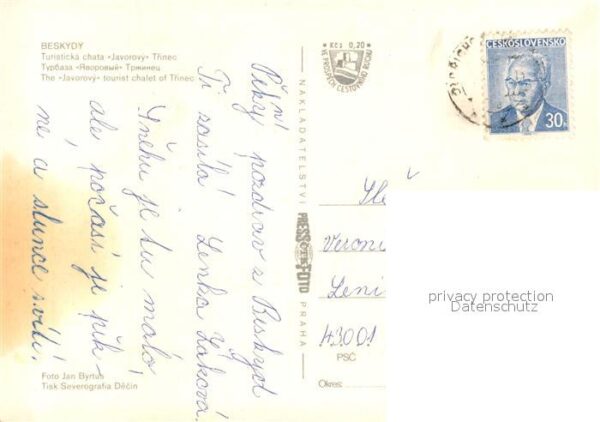 BESKYDY
Turistická chata «Javorový» Třinec
Турбаза «Яворовый» Тржинец
The «Javorový» tourist chalet of Třinec
Kčs 0,20
VE PROSPĚCH CESTOVNÍHO RUCHU
ČESKOSLOVENSKO
30
Pěkný pozdrav z Beskyd
Ti posílá Lenka Žáková.
Sněhu je tu málo
ale počasí je pěk-
né a slunce svítí.
NAKLADATELSTVÍ
PRESSFOTO
PRAHA
Sle
Veroni
Leni
43001
PSČ
Okres:
privacy protection
Datenschutz
Foto Jan Byrtus
Tisk Severografia Děčín